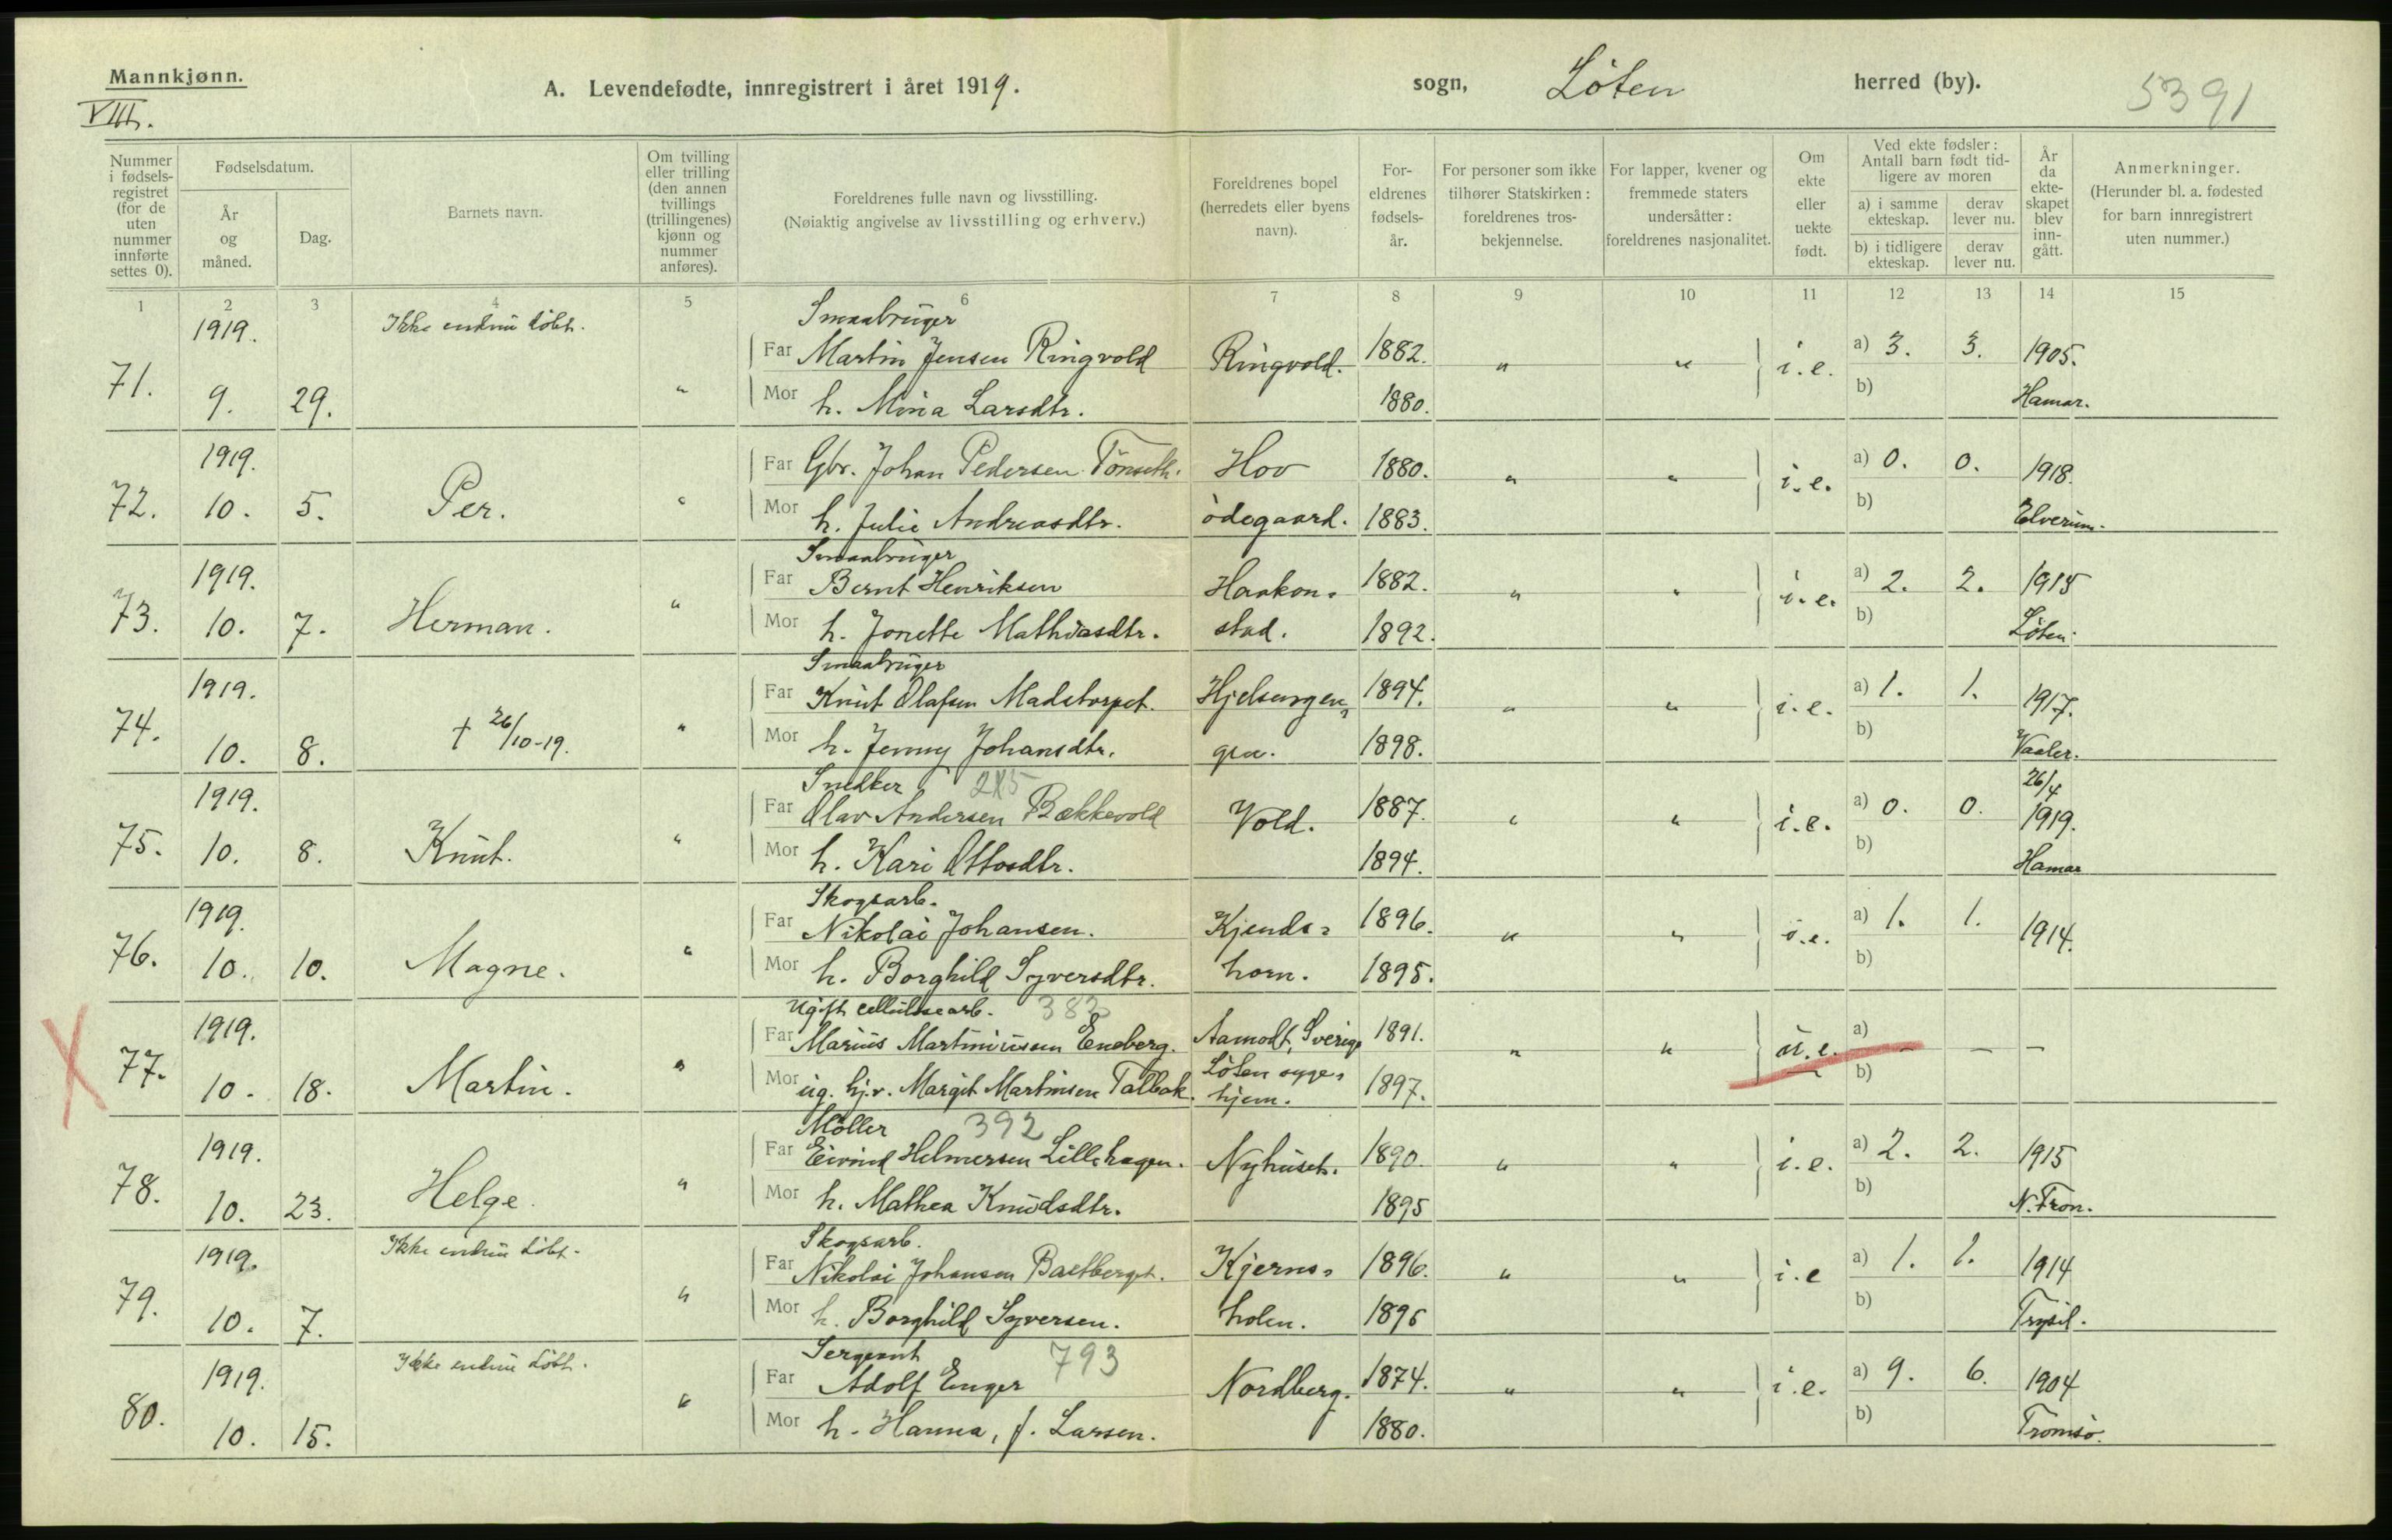 Mannkjønn.
VIII.
A. Levendefødte, innregistrert i året 1919.
sogn, Löten herred (by).
5391
Nummer i fødselsregistret (for de uten nummer innførte settes 0).
Fødselsdatum.
År og måned.
Dag.
Barnets navn.
Om tvilling eller trilling (den annen tvillings (trillingenes) kjønn og nummer anføres).
Foreldrenes fulle navn og livsstilling.
(Nøiaktig angivelse av livsstilling og erhverv.)
Foreldrenes bopel (herredets eller byens navn).
Foreldrenes fødselsår.
For personer som ikke tilhører Statskirken: foreldrenes trosbekjennelse.
For lapper, kvener og fremmede staters undersåtter: foreldrenes nasjonalitet.
Om ekte eller uekte født.
Ved ekte fødsler: Antall barn født tidligere av moren
a) i samme ekteskap.
derav lever nu.
b) i tidligere ekteskap.
derav lever nu.
År da ekteskapet blev inngått.
Anmerkninger.
(Herunder bl. a. fødested for barn innregistrert uten nummer.)
1 2 3 4 5 6 7 8 9 10 11 12 13 14 15
1919. Ikke endnu döbt. Smaabruger
Far Martin Jensen Ringvold Ringvold. 1882. " " i.e. a) 3. 3. 1905.
71. 9. 29. " Mor h. Mina Larsdtr. 1880. b) Hamar.
1919. Far Gbr. Johan Pedersen Tönseth. Hov 1880. " " i.e. a) 0. 0. 1918.
72. 10. 5. Per. " Mor h. Julie Andreasdtr. ödegaard. 1883. b) Elverum.
Smaabruger
1919. Far Bernt Henriksen Haakon= 1882. " " i.e. a) 2. 2. 1915
73. 10. 7. Herman. " Mor h. Jonette Mathiasdtr. stad. 1892. b) Löten.
Smaabruger
1919. Far Knut Olafsen Madstorpet. Hjelsengen= 1894. " " i.e. a) 1. 1. 1917.
74. 10. 8. † 26/10-19. " Mor h. Jenny Johansdtr. gra. 1898. b) Vaaler.
Snedker 26/4
1919. Far Olav Andersen Bækkevold Vold. 1887. " " i.e. a) 0. 0. 1919.
75. 10. 8. Knut. " Mor h. Kari Ottosdtr. 1894. b) Hamar
Skogsarb.
1919. Far Nikolai Johansen. Kjends= 1896. " " i.e. a) 1. 1. 1914.
76. 10. 10. Magne. " Mor h. Borghild Syversdtr. horn. 1895. b)
Ugift cellulosearb. 382
1919. Far Marius Martiniussen Eneberg. Aamodt, Sverige 1891. " " u.e. a) — — —
X 77. 10. 18. Martin. " Mor ug. hj.v. Margit Martinsen Talbak. Löten syge= hjem. 1897. b)
Möller 392
1919. Far Eivind Helmersen Lillehagen. Nyhuset. 1890. " " i.e. a) 2. 2. 1915
78. 10. 23. Helge. " Mor h. Mathea Knudsdtr. 1895 b) N. Fron.
Ikke endnu döbt. Skogsarb.
1919. Far Nikolai Johansen Bastberget. Kjerns= 1896. " " i.e a) 1. 1. 1914
79. 10. 7. " Mor h. Borghild Syversen. holen. 1895 b) Trysil.
Ikke endnu döbt. Sergeant 793
1919. Far Adolf Enger Nordberg. 1874. " " i.e. a) 9. 6. 1904
80. 10. 15. " Mor h. Hanna, f. Larsen. 1880. b) Tromsö.